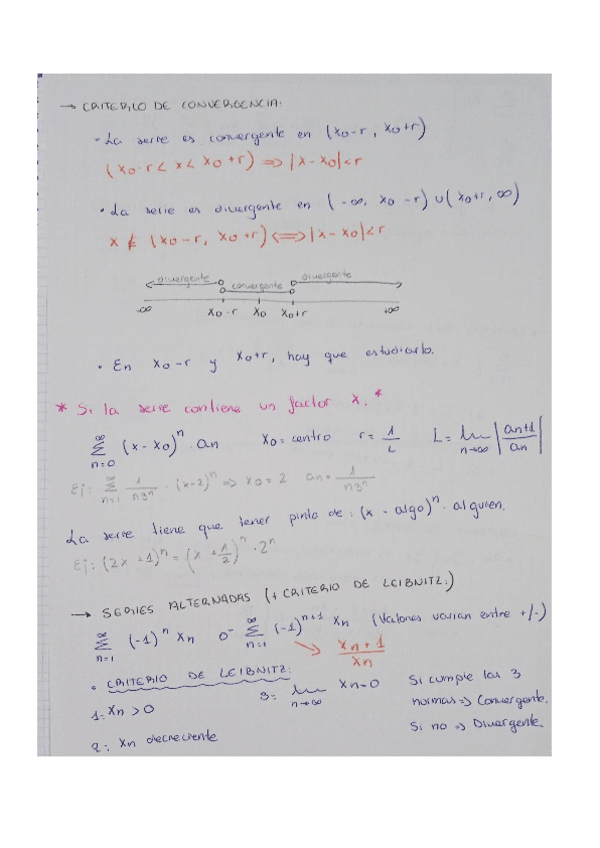 → CRITERIO DE CONVERGENCIA:
- La serie es convergente en (x₀-r, x₀+r)
(x₀-r < x < x₀+r) ⇒ |x-x₀|<r
• La serie es divergente en (-∞, x₀-r) ∪ (x₀+r, ∞)
x ∉ (x₀-r, x₀+r) ⇔ |x-x₀|<r
divergente convergente divergente
-∞ x₀-r x₀ x₀+r +∞
• En x₀-r y x₀+r, hay que estudiarlo.
* Si la serie contiene un factor x. *
∑_{n=0}^{∞} (x-x₀)ⁿ · an x₀ = centro r = 1/L L = lim_{n→∞} |an+1/an|
Ej: ∑_{n=1}^{∞} 1/n3ⁿ · (x-2)ⁿ ⇒ x₀=2 an = 1/n3ⁿ
La serie tiene que tener pinta de: (x - algo)ⁿ · alguien.
Ej: (2x+1)ⁿ = (x + 1/2)ⁿ · 2ⁿ
→ SERIES ALTERNADAS (+ CRITERIO DE LEIBNITZ:)
∑_{n=1}^{∞} (-1)ⁿ xn o- ∑_{n=1}^{∞} (-1)ⁿ⁺¹ xn (Valores varian entre +/-)
→ xn+1/xn
• CRITERIO DE LEIBNITZ:
1: xn > 0
2: xn decreciente
3: lim_{n→∞} xn=0
Si cumple las 3
normas ⇒ Convergente.
Si no ⇒ Divergente.